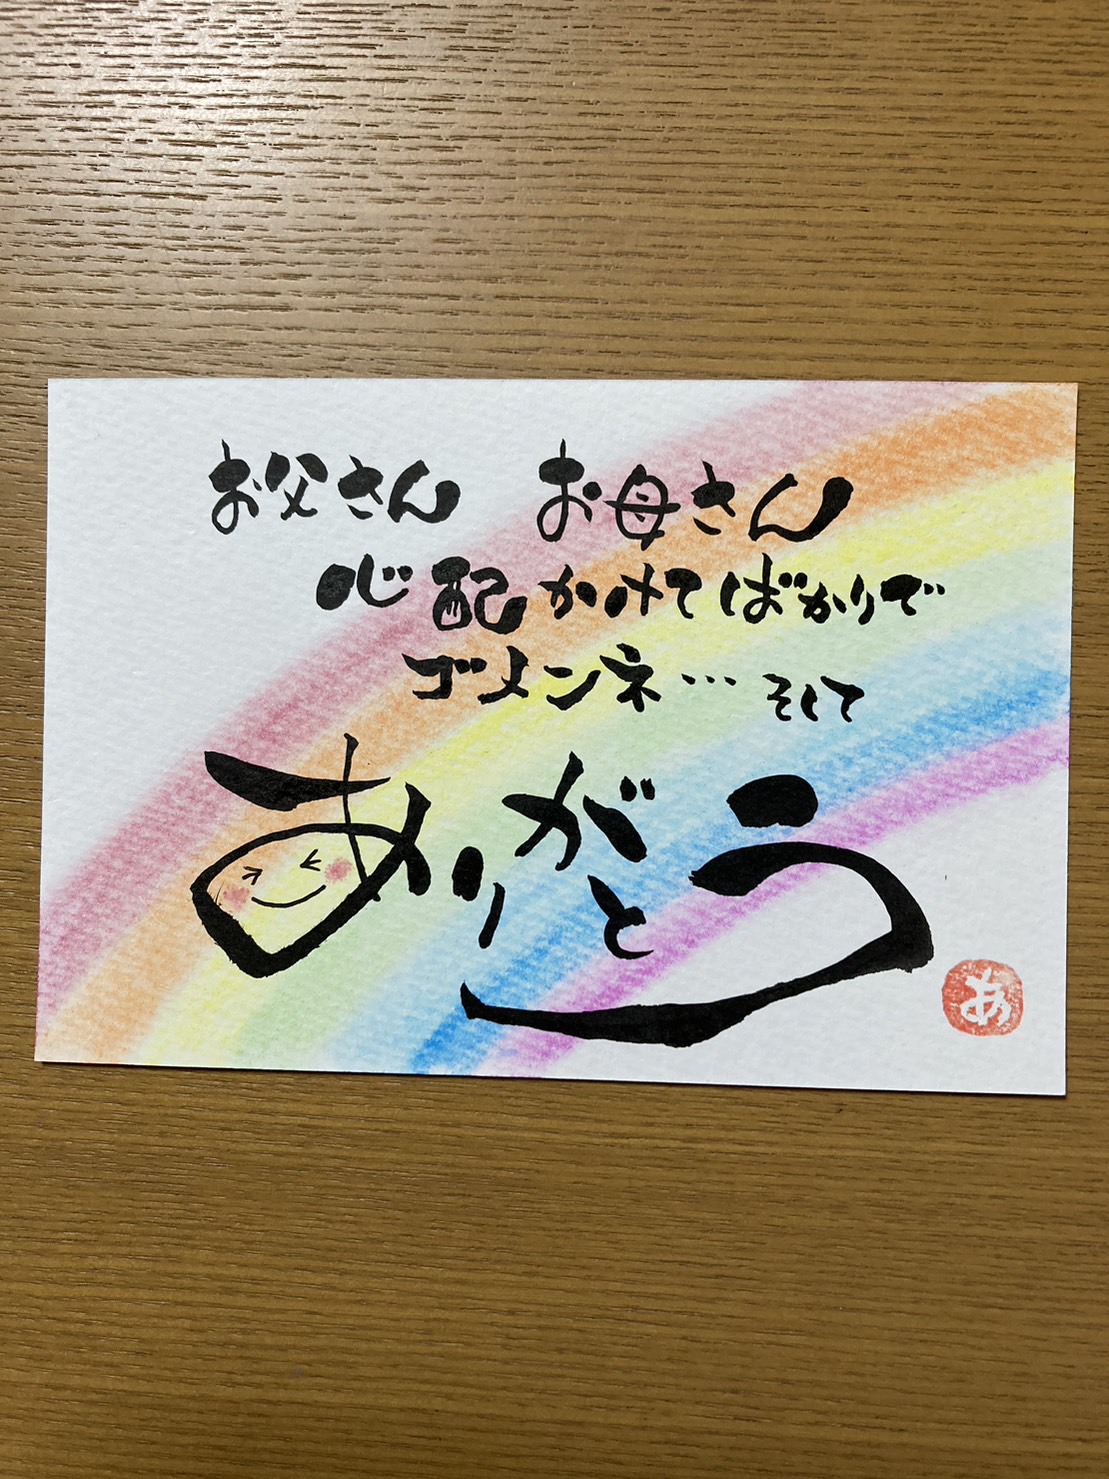 お父さん お母さん
心配かけてばかりで
ゴメンネ… そして
ありがとう
あ